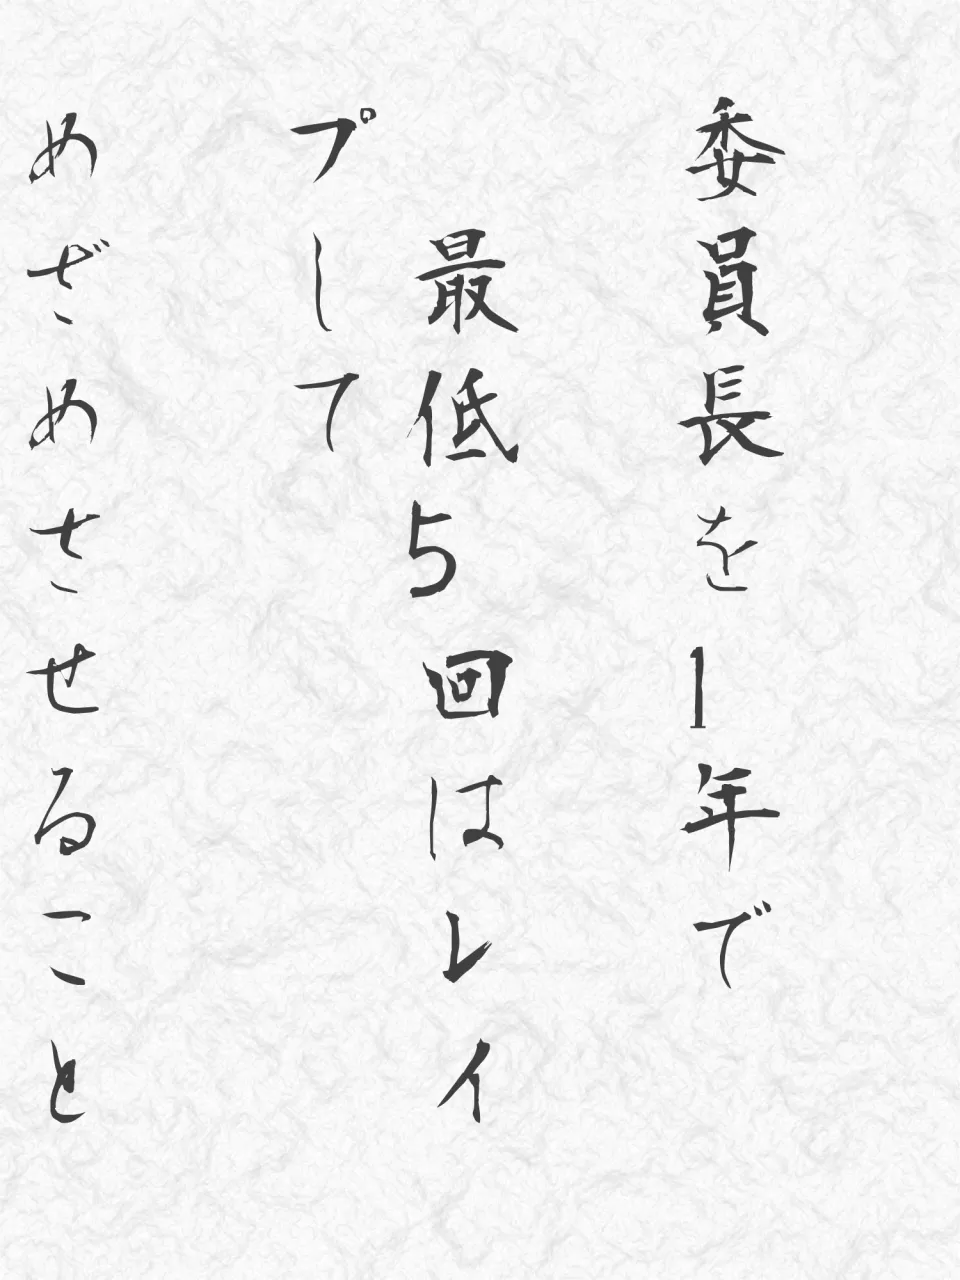 委員長を1年で
最低5回はレイ
プして
めざめさせること